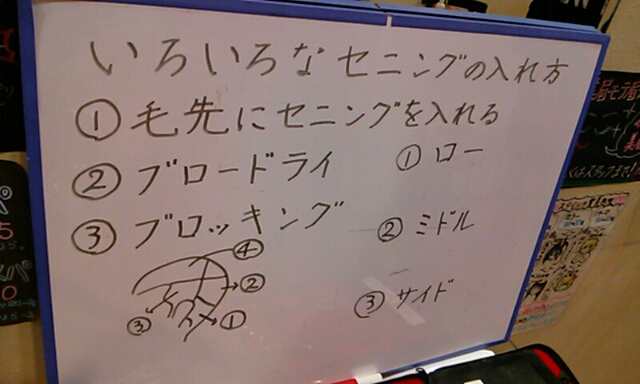 いろいろなセニングの入れ方
① 毛先にセニングを入れる
② ブロードライ
① ロー
③ ブロッキング
② ミドル
④
②
③
①
③ サイド